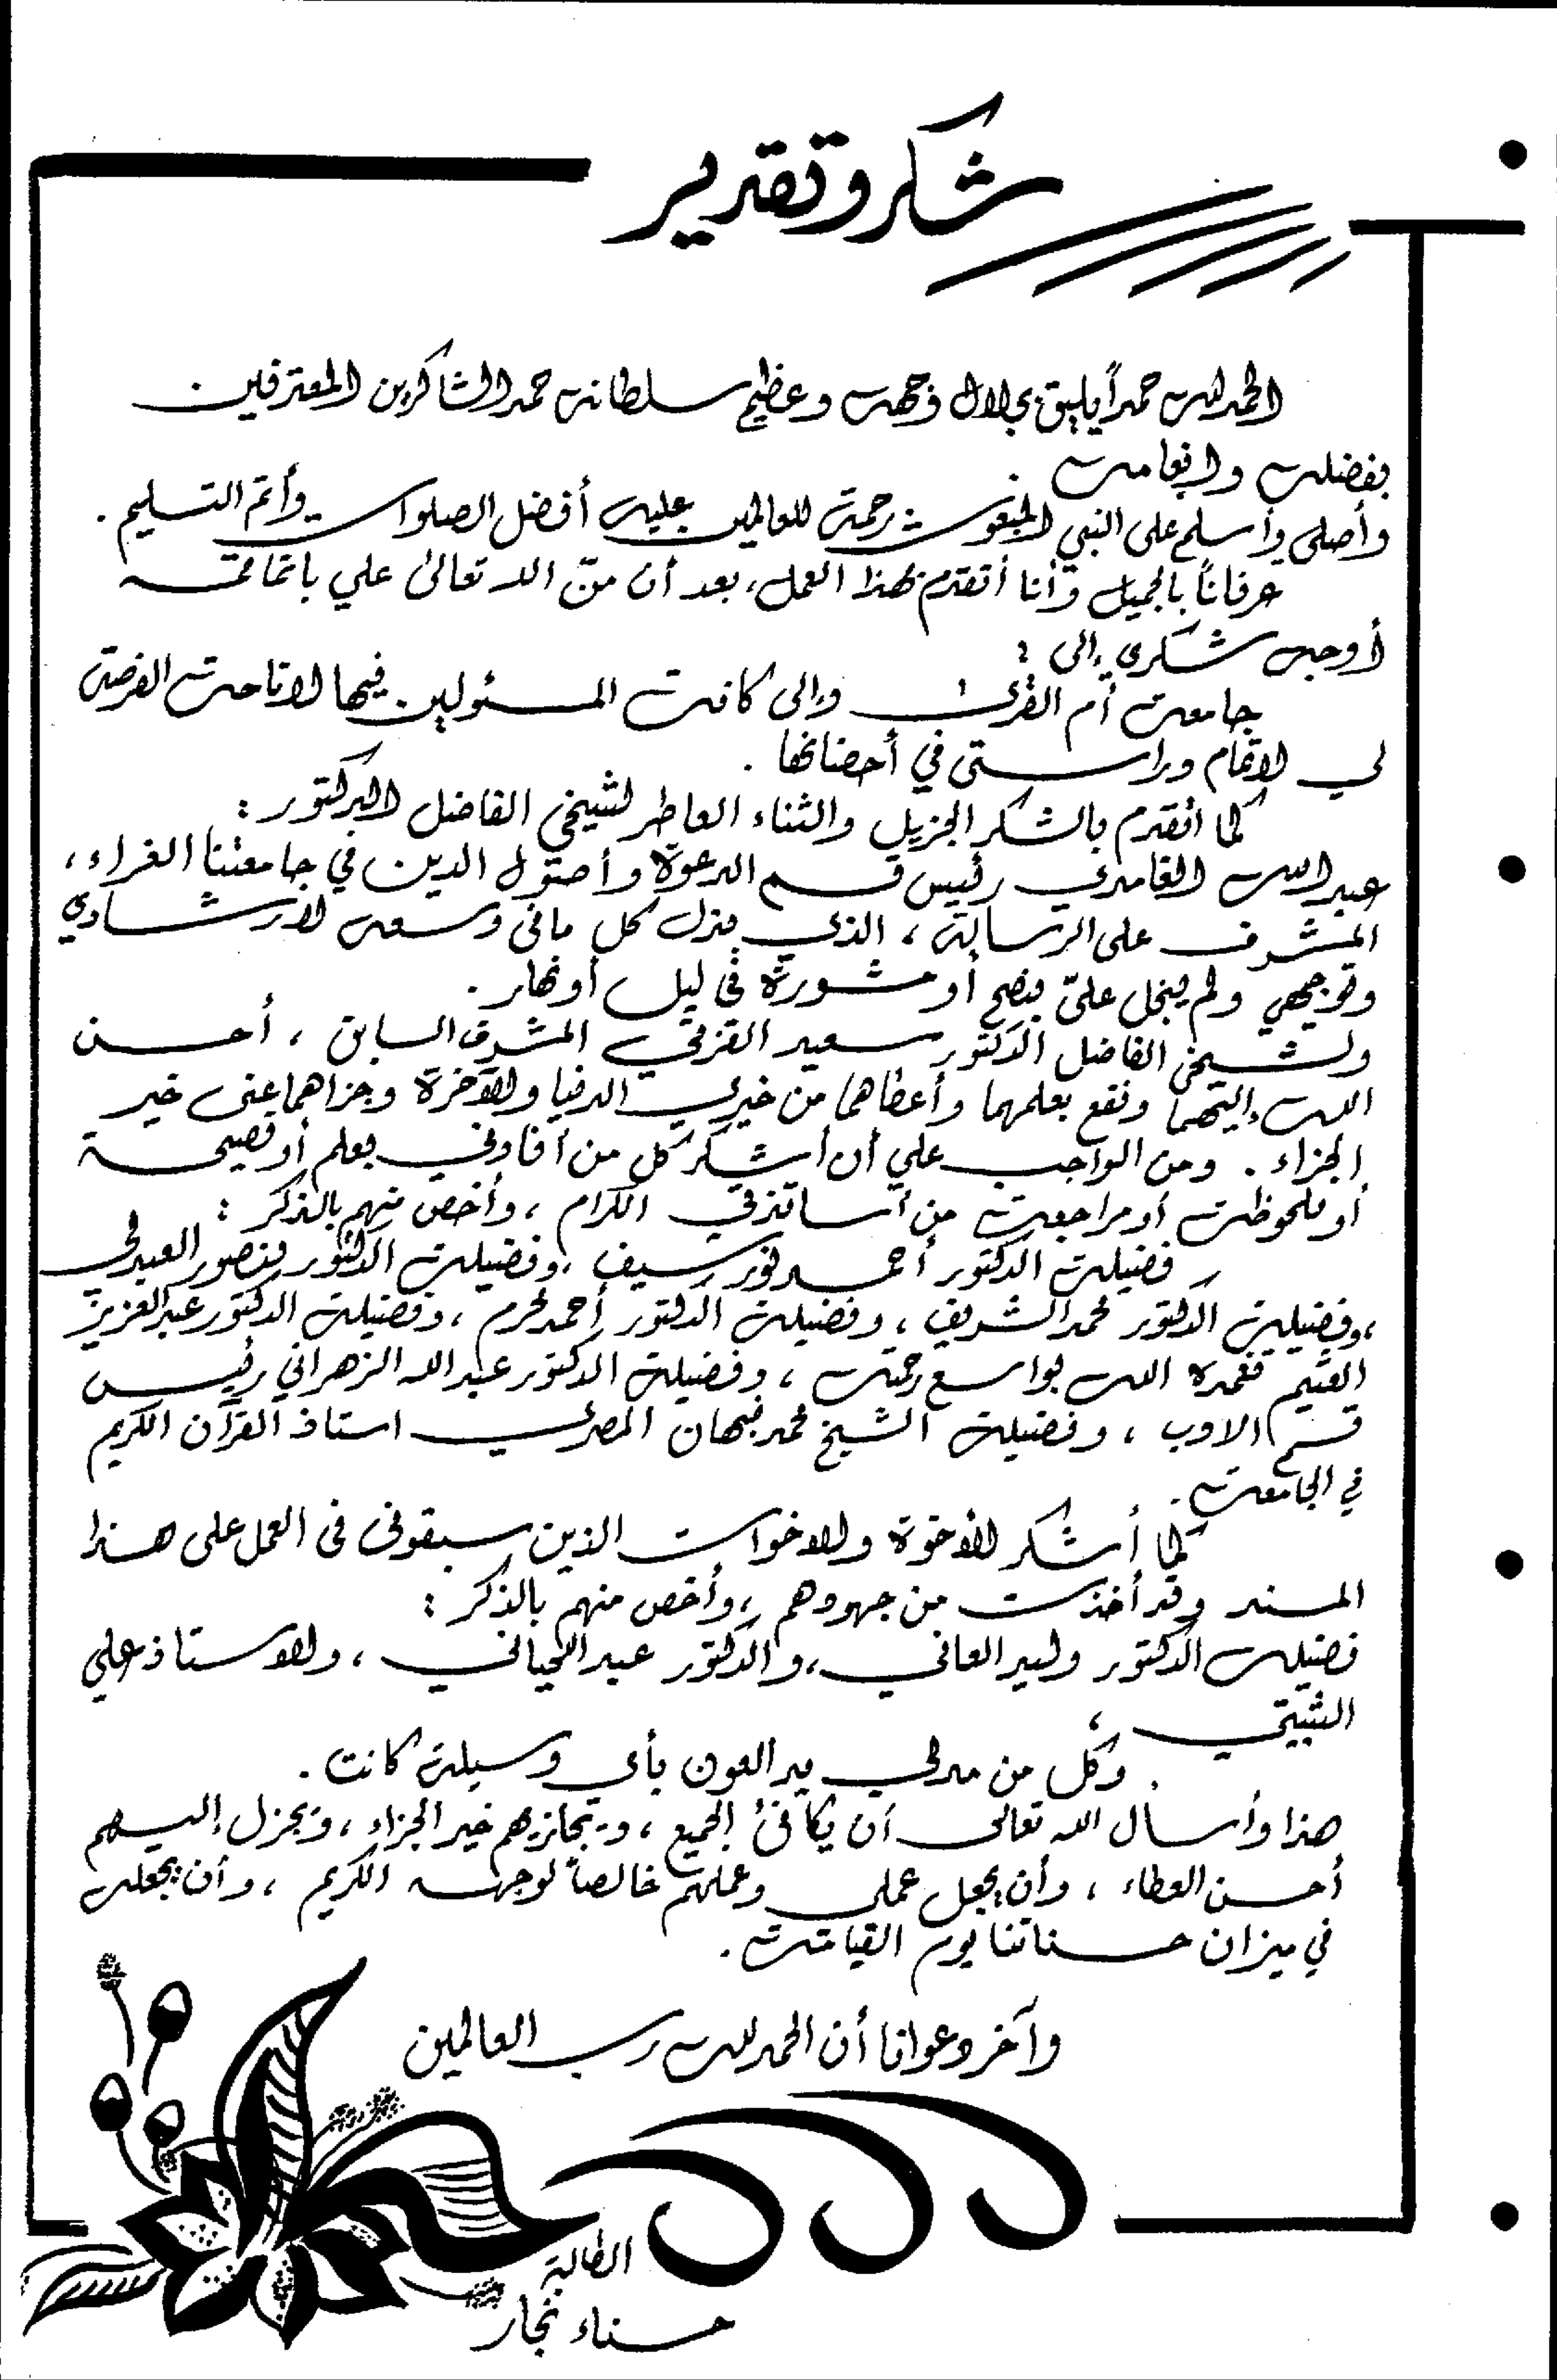 شكر وتقدير
الحمد لله حمداً يليق بجلال وجهه وعظيم سلطانه حمد الشاكرين المعترفين
بفضله وإنعامه .
وأصلي وأسلم على النبي المبعوث رحمة للعالمين عليه أفضل الصلوات وأتم التسليم .
عرفاناً بالجميل وأنا أتقدم بهذا العمل ، بعد أن منّ الله تعالى علي باتمامه
أوجه شكري إلى :
جامعة أم القرى وإلى كافة المسئولين فيها لاتاحة الفرصة
لي لاتمام دراستي في أحضانها .
كما أتقدم بالشكر الجزيل والثناء العاطر لشيخي الفاضل الدكتور :
عبد الله الغامدي رئيس قسم الدعوة وأصول الدين في جامعتنا الغراء ،
المشرف على الرسالة ، الذي بذل كل مافي وسعه لارشادي
وتوجيهي ولم يبخل عليّ بنصح أو مشورة في ليل أو نهار .
ولشيخي الفاضل الدكتور سعيد القزقي المشرف السابق ، أحسن
الله إليهما ونفع بعلمهما وأعطاهما من خيري الدنيا والآخرة وجزاهما عني خير
الجزاء . ومن الواجب علي أن أشكر كل من أفادني بعلم أو نصيحة
أو ملحوظة أو مراجعة من أساتذتي الكرام ، وأخص منهم بالذكر :
فضيلة الدكتور أحمد نور سيف ، وفضيلة الدكتور منصور العبدلي
، وفضيلة الدكتور محمد الشريف ، وفضيلة الدكتور أحمد محرم ، وفضيلة الدكتور عبد العزيز
العثيم تغمده الله بواسع رحمته ، وفضيلة الدكتور عبد الله الزهراني رئيس
قسم الادب ، وفضيلة الشيخ محمد نبهان المصري استاذ القرآن الكريم
في الجامعة .
كما أشكر الأخوة والاخوات الذين سبقوني في العمل على هذا
المسند وقد أخذت من جهودهم ، وأخص منهم بالذكر :
فضيلة الدكتور وليد العاني ، والدكتور عبد اللحياني ، والاستاذ علي
الثبيتي ،
وكل من مد لي يد العون بأي وسيلة كانت .
هذا وأسأل الله تعالى أن يكافئ الجميع ، ويجازيهم خير الجزاء ، ويجزل إليهم
أحسن العطاء ، وأن يجعل عملي وعملهم خالصاً لوجهه الكريم ، وأن يجعله
في ميزان حسناتنا يوم القيامة .
وآخر دعوانا أن الحمد لله رب العالمين
الطالبة
حسناء نجار